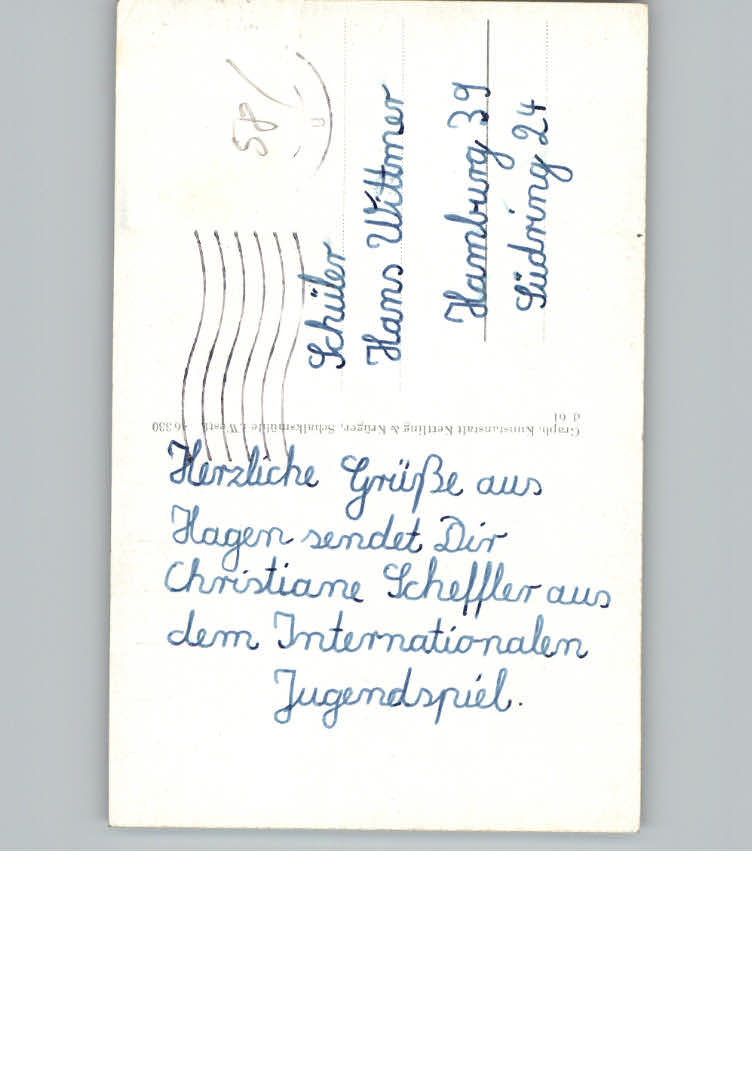 Herzliche Grüße aus
Hagen sendet Dir
Christiane Scheffler aus
dem Internationalen
Jugendspiel.
Schüler
Hans Wittmer
Hamburg 39
Südring 24
Graph. Kunstanstalt Kettling & Krüger, Schalksmühle i. Westf.
d 61
58